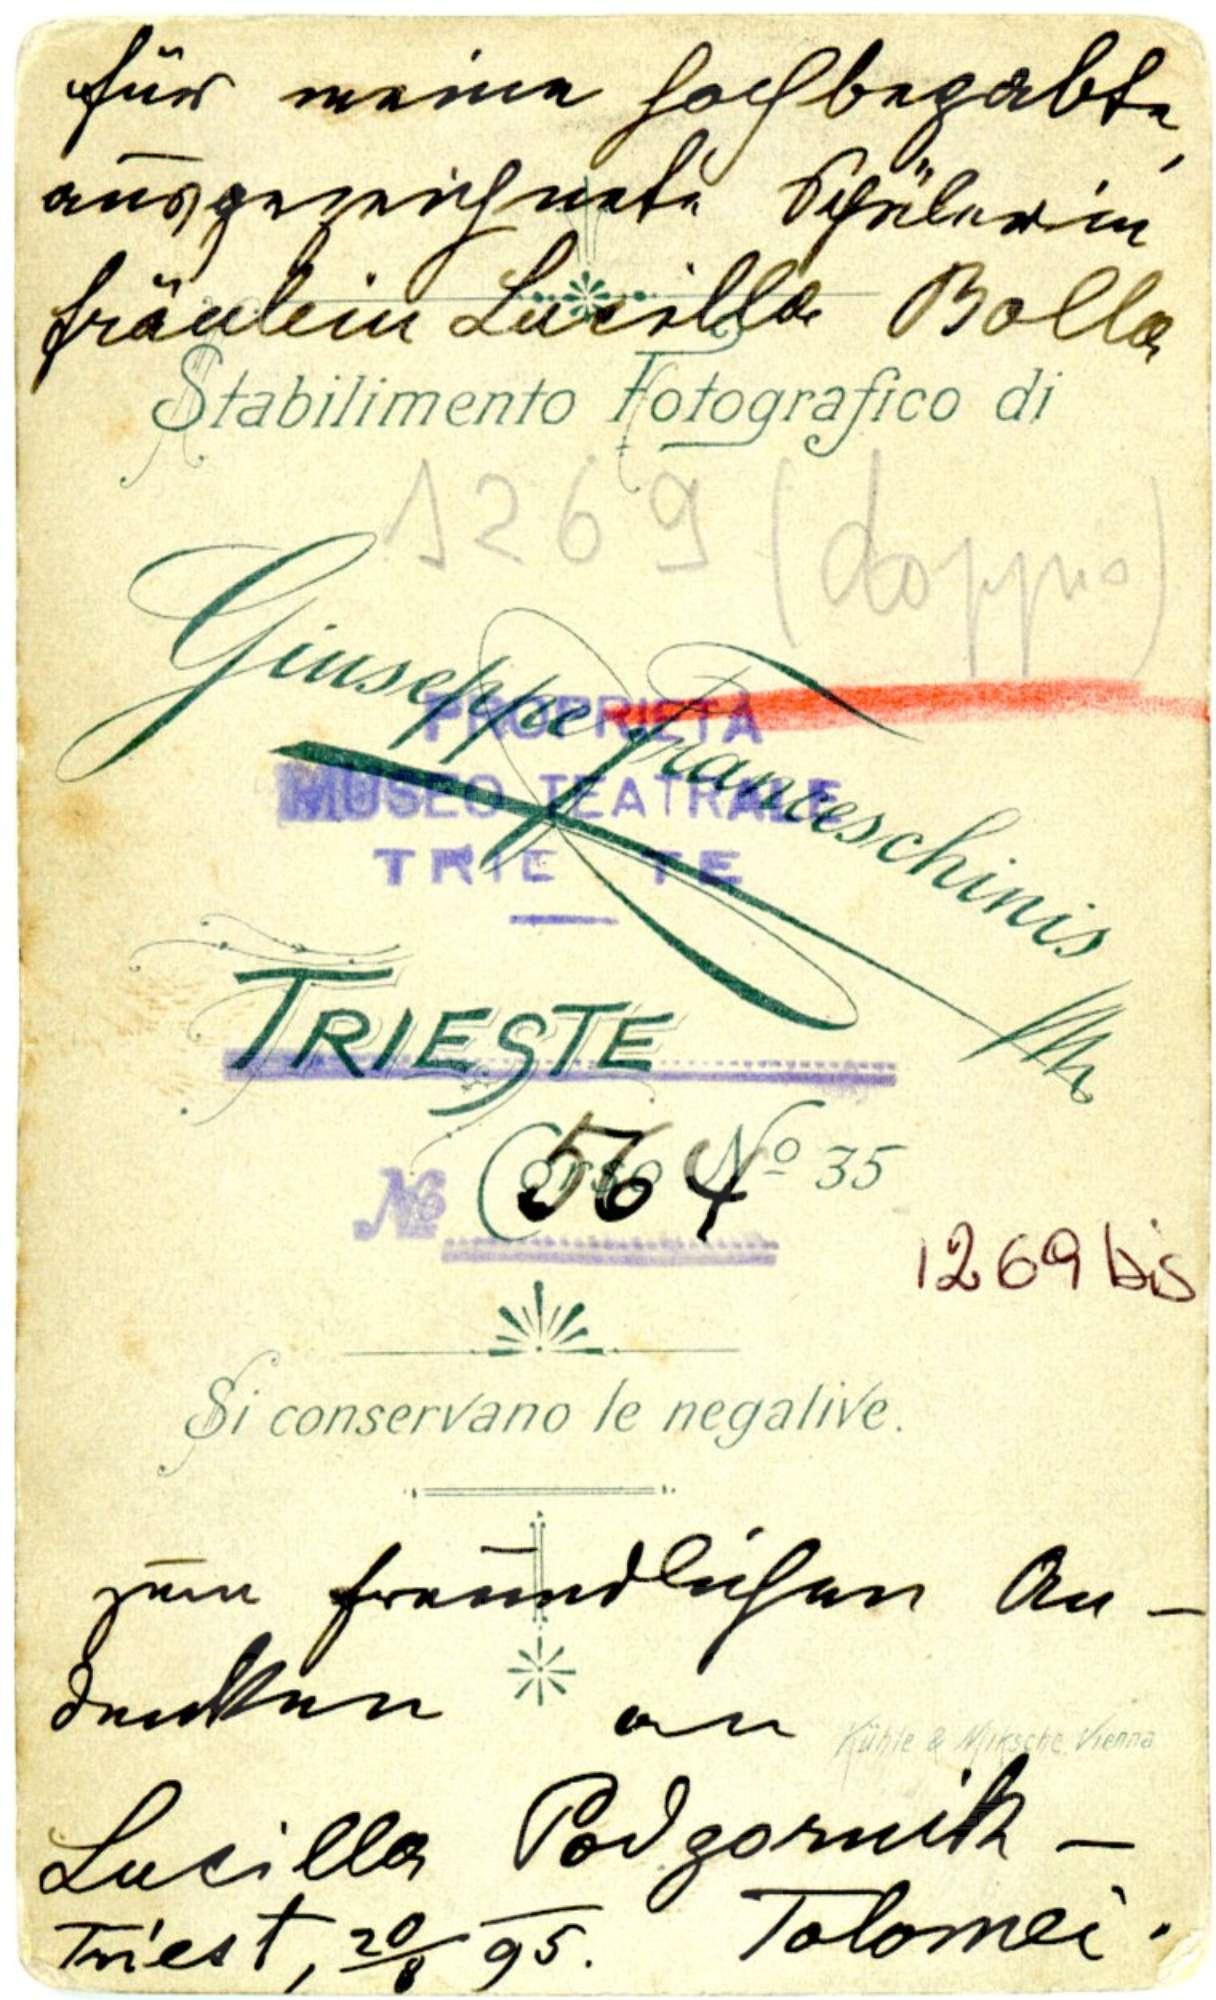 für meine hochbegabte,
ausgezeichnete Schülerin
Fräulein Lucilla Bolla
Stabilimento Fotografico di
1269 (doppio)
Giuseppe Franceschinis
PROPRIETÀ
MUSEO TEATRALE
TRIE TE
TRIESTE
Corso No 35
No 564
1269 bis
Si conservano le negative.
zum freundlichen An-
denken an
Kühle & Miksche, Vienna
Lucilla Podgornik-
Tolomei.
Triest, 20/8 95.